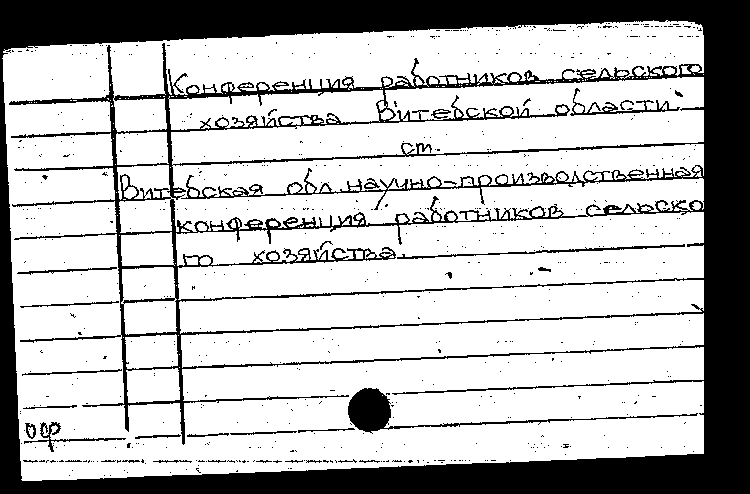 Конференция работников сельского
хозяйства Витебской области.
ст.
Витебская обл. научно-производственная
конференция работников сельско
го хозяйства.
оф